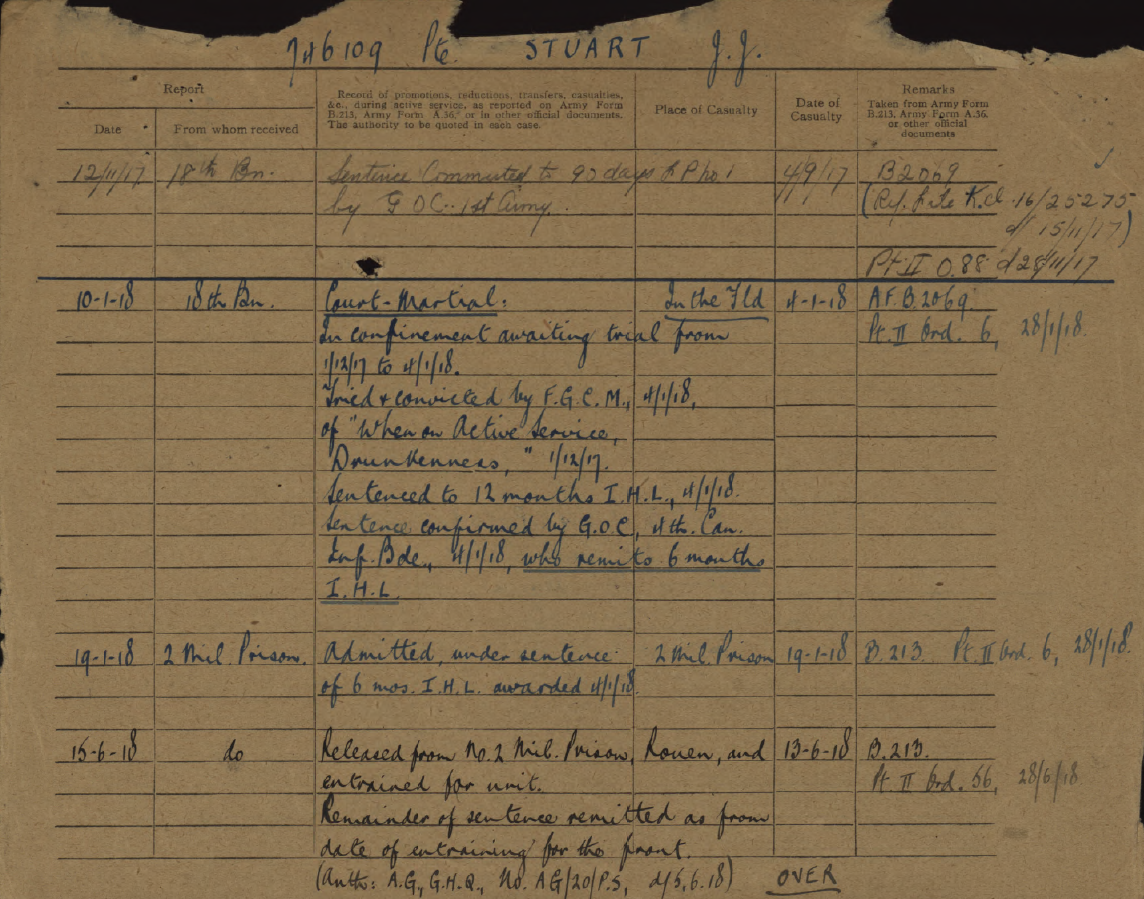 746109 Pte. STUART J.J.
Report
Record of promotions, reductions, transfers, casualties, &c., during active service, as reported on Army Form B.213, Army Form A.36, or in other official documents. The authority to be quoted in each case.
Place of Casualty
Date of Casualty
Remarks
Taken from Army Form B.213, Army Form A.36, or other official documents
Date
From whom received
12/11/17 18th Bn. Sentence Commuted to 90 days F P No 1 4/9/17 B2069
by G O C. 1st Army. 16/25275
d/ 15/11/17)
Pt. II O.88 d/28/11/17
10-1-18 18th Bn. Court-Martial: In the Fld 4-1-18 A.F.B.2069.
In confinement awaiting trial from Pt. II Ord. 6, 28/1/18.
1/12/17 to 4/1/18.
Tried & convicted by F.G.C.M., 4/1/18,
of "When on Active Service,
Drunkenness," 1/12/17.
Sentenced to 12 months I.H.L., 4/1/18.
Sentence confirmed by G.O.C, 4th. Can.
Inf. Bde., 4/1/18, who remits 6 months
I.H.L.
19-1-18 2 Mil. Prison. Admitted, under sentence 2 Mil. Prison 19-1-18 B.213. Pt. II Ord. 6, 28/1/18.
of 6 mos. I.H.L. awarded 4/1/18.
15-6-18 do Released from No. 2 Mil. Prison, Rouen, and 13-6-18 B.213.
entrained for unit. Pt. II Ord. 56, 28/6/18
Remainder of sentence remitted as from
date of entraining for the front.
(Auth: A.G., G.H.Q., No. AG/20/P.S, d/5.6.18) OVER